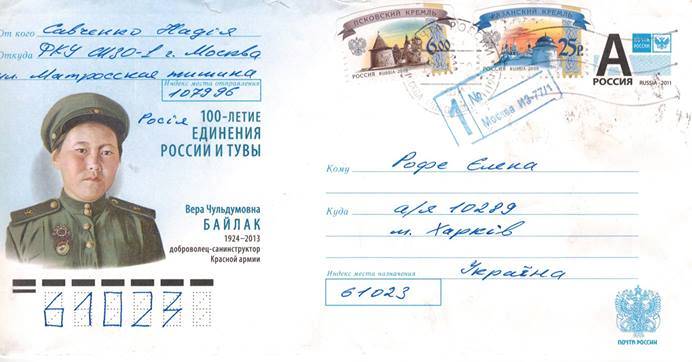 От кого Савченко Надія
Откуда ФКУ СИЗО-1 г. Москва
ул. Матросская тишина
Индекс места отправления
107996
Росія
100-ЛЕТИЕ
ЕДИНЕНИЯ
РОССИИ И ТУВЫ
Вера Чульдумовна
БАЙЛАК
1924–2013
доброволец-санинструктор
Красной армии
61023
ПСКОВСКИЙ КРЕМЛЬ
6.00
РОССИЯ RUSSIA
КАЗАНСКИЙ КРЕМЛЬ
25р
РОССИЯ RUSSIA
А
РОССИЯ
RUSSIA 2011
1 No
Москва ИЗ-77/1
Кому Рофе Єлена
Куда а/я 10289
м. Харків
Україна
Индекс места назначения
61023
ПОЧТА РОССИИ